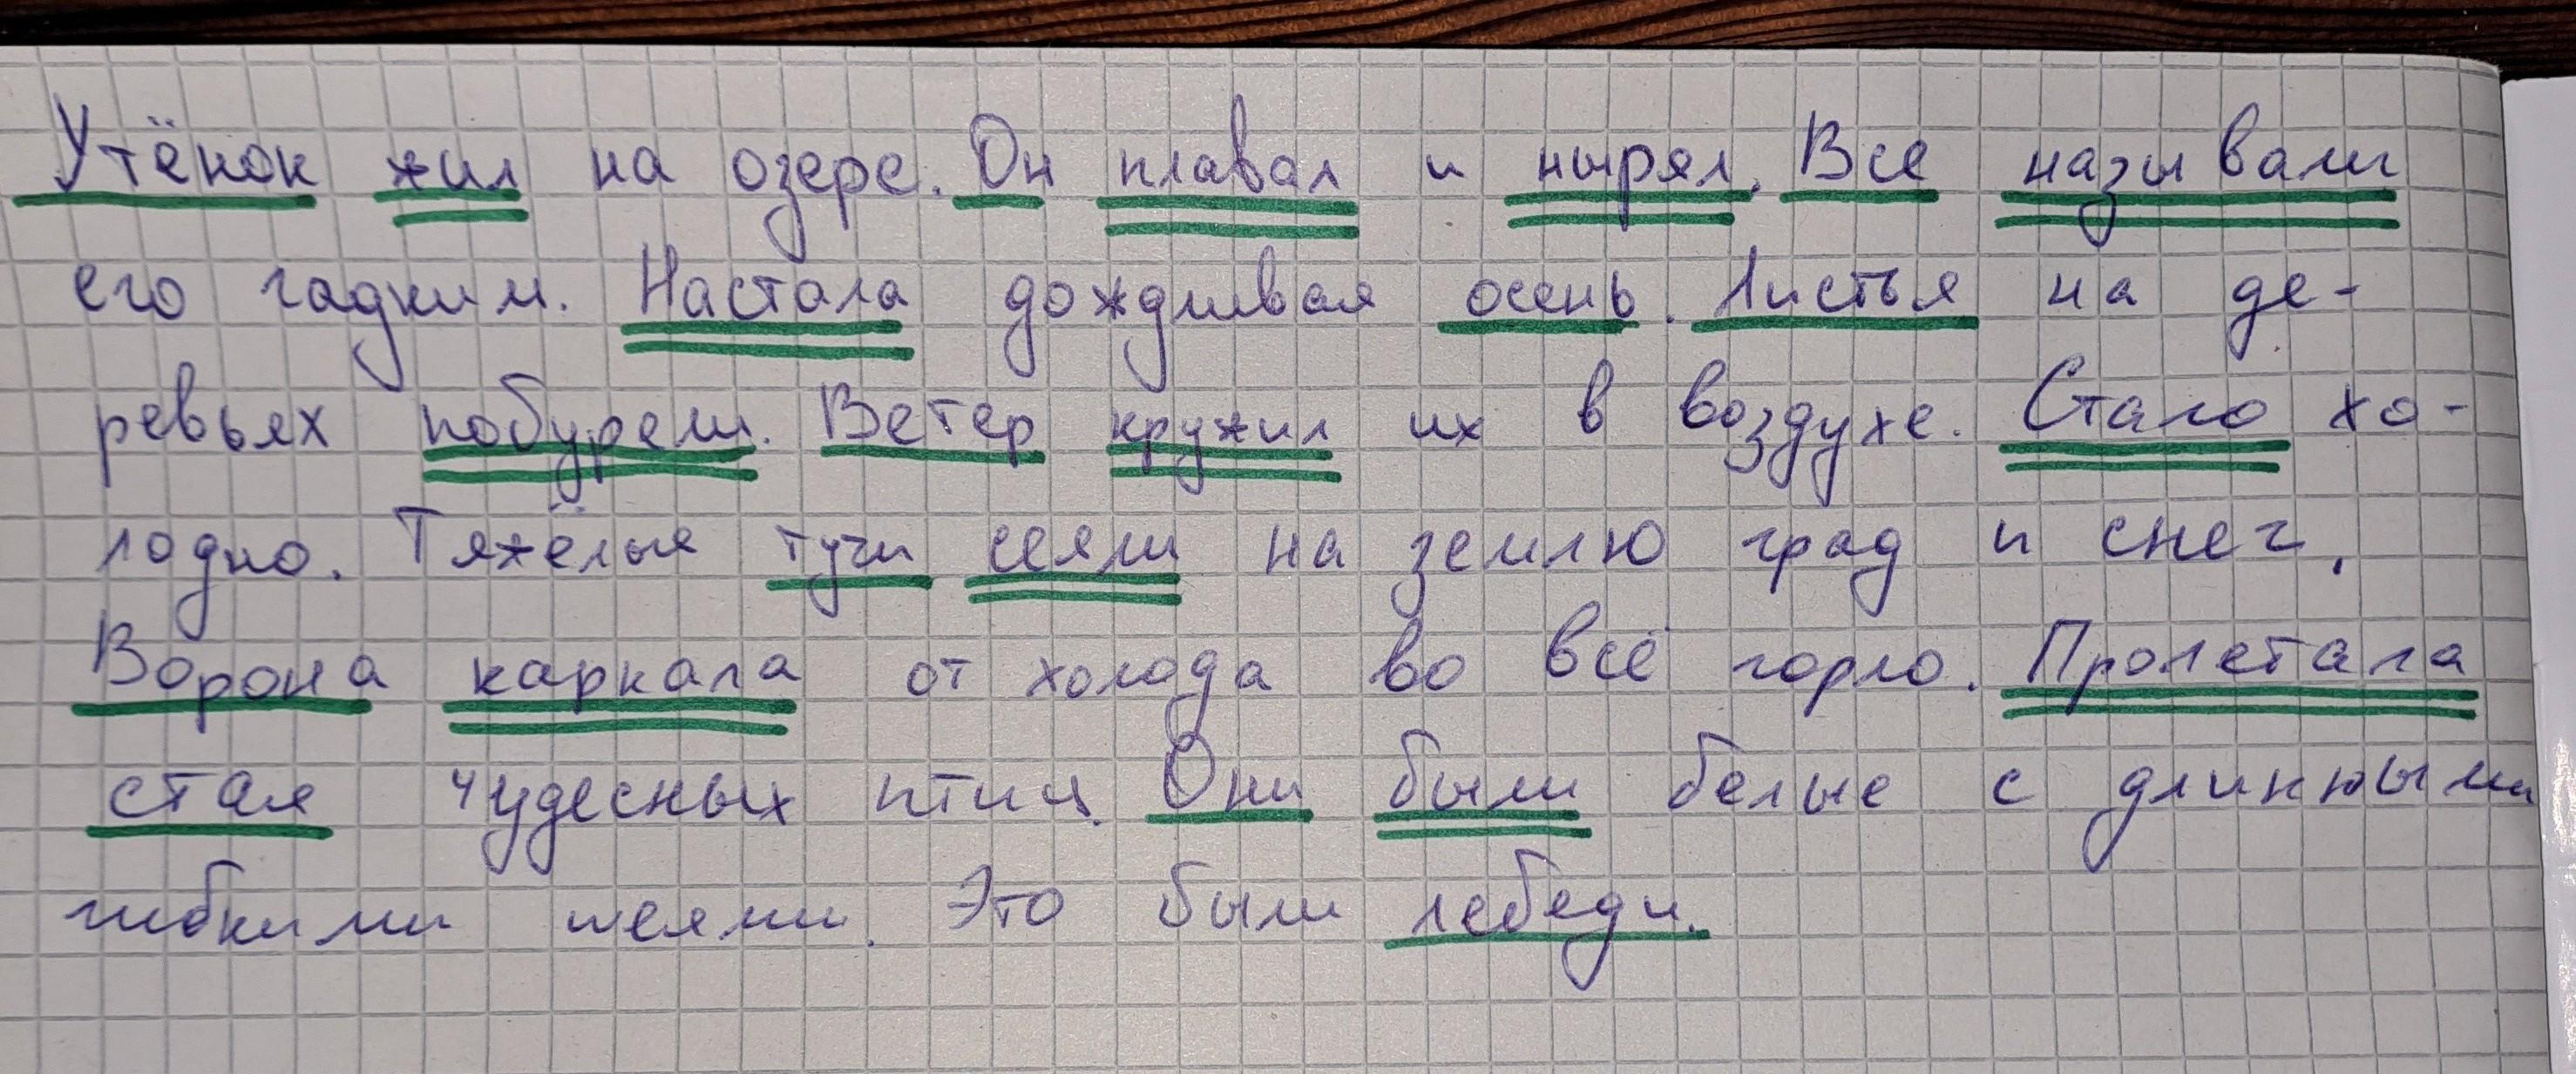 Утёнок жил на озере. Он плавал и нырял. Все называли
его гадким. Настала дождливая осень. Листья на де-
ревьях побурели. Ветер кружил их в воздухе. Стало хо-
лодно. Тяжёлые тучи сеяли на землю град и снег.
Ворона каркала от холода во всё горло. Пролетала
стая чудесных птиц. Они были белые с длинными
гибкими шеями. Это были лебеди.